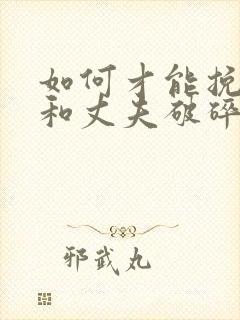 如何才能挽
和丈夫破碎
邪武丸